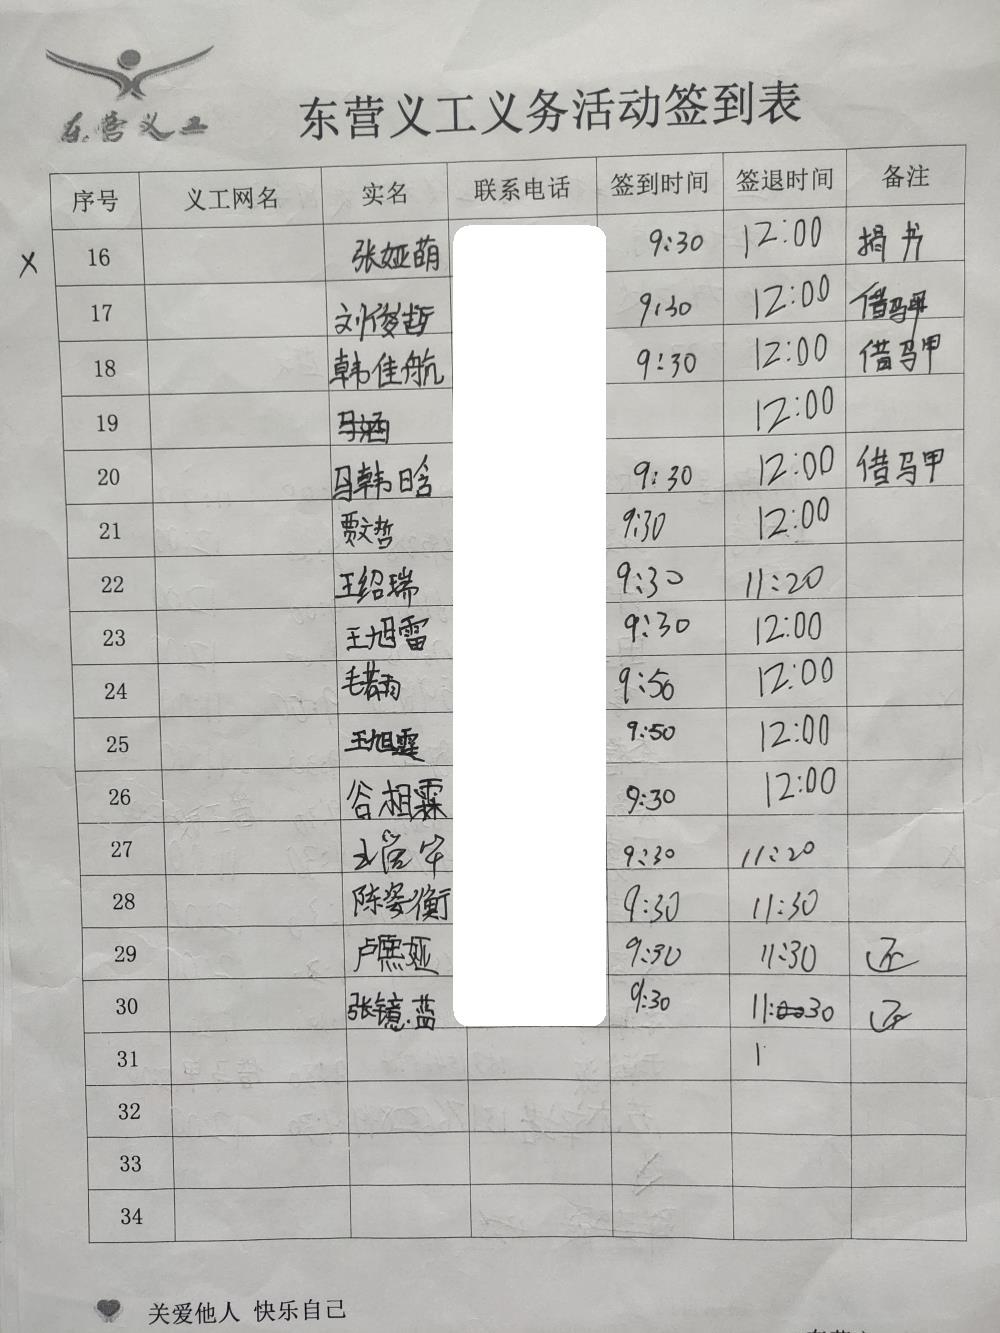 东营义工
东营义工义务活动签到表
序号 义工网名 实名 联系电话 签到时间 签退时间 备注
X 16 张娅萌 9:30 12:00 捐书
17 刘俊哲 9:30 12:00 借马甲
18 韩佳航 9:30 12:00 借马甲
19 马涵 12:00
20 马韩晗 9:30 12:00 借马甲
21 贾文哲 9:30 12:00
22 王绍瑞 9:30 11:20
23 王旭雷 9:30 12:00
24 毛若雨 9:50 12:00
25 王旭霆 9:50 12:00
26 谷相霖 9:30 12:00
27 9:30 11:20
28 陈姿衡 9:30 11:30
29 卢熙娅 9:30 11:30 还
30 张镜蓝 9:30 11:30 还
31 1
32
33
34
关爱他人 快乐自己